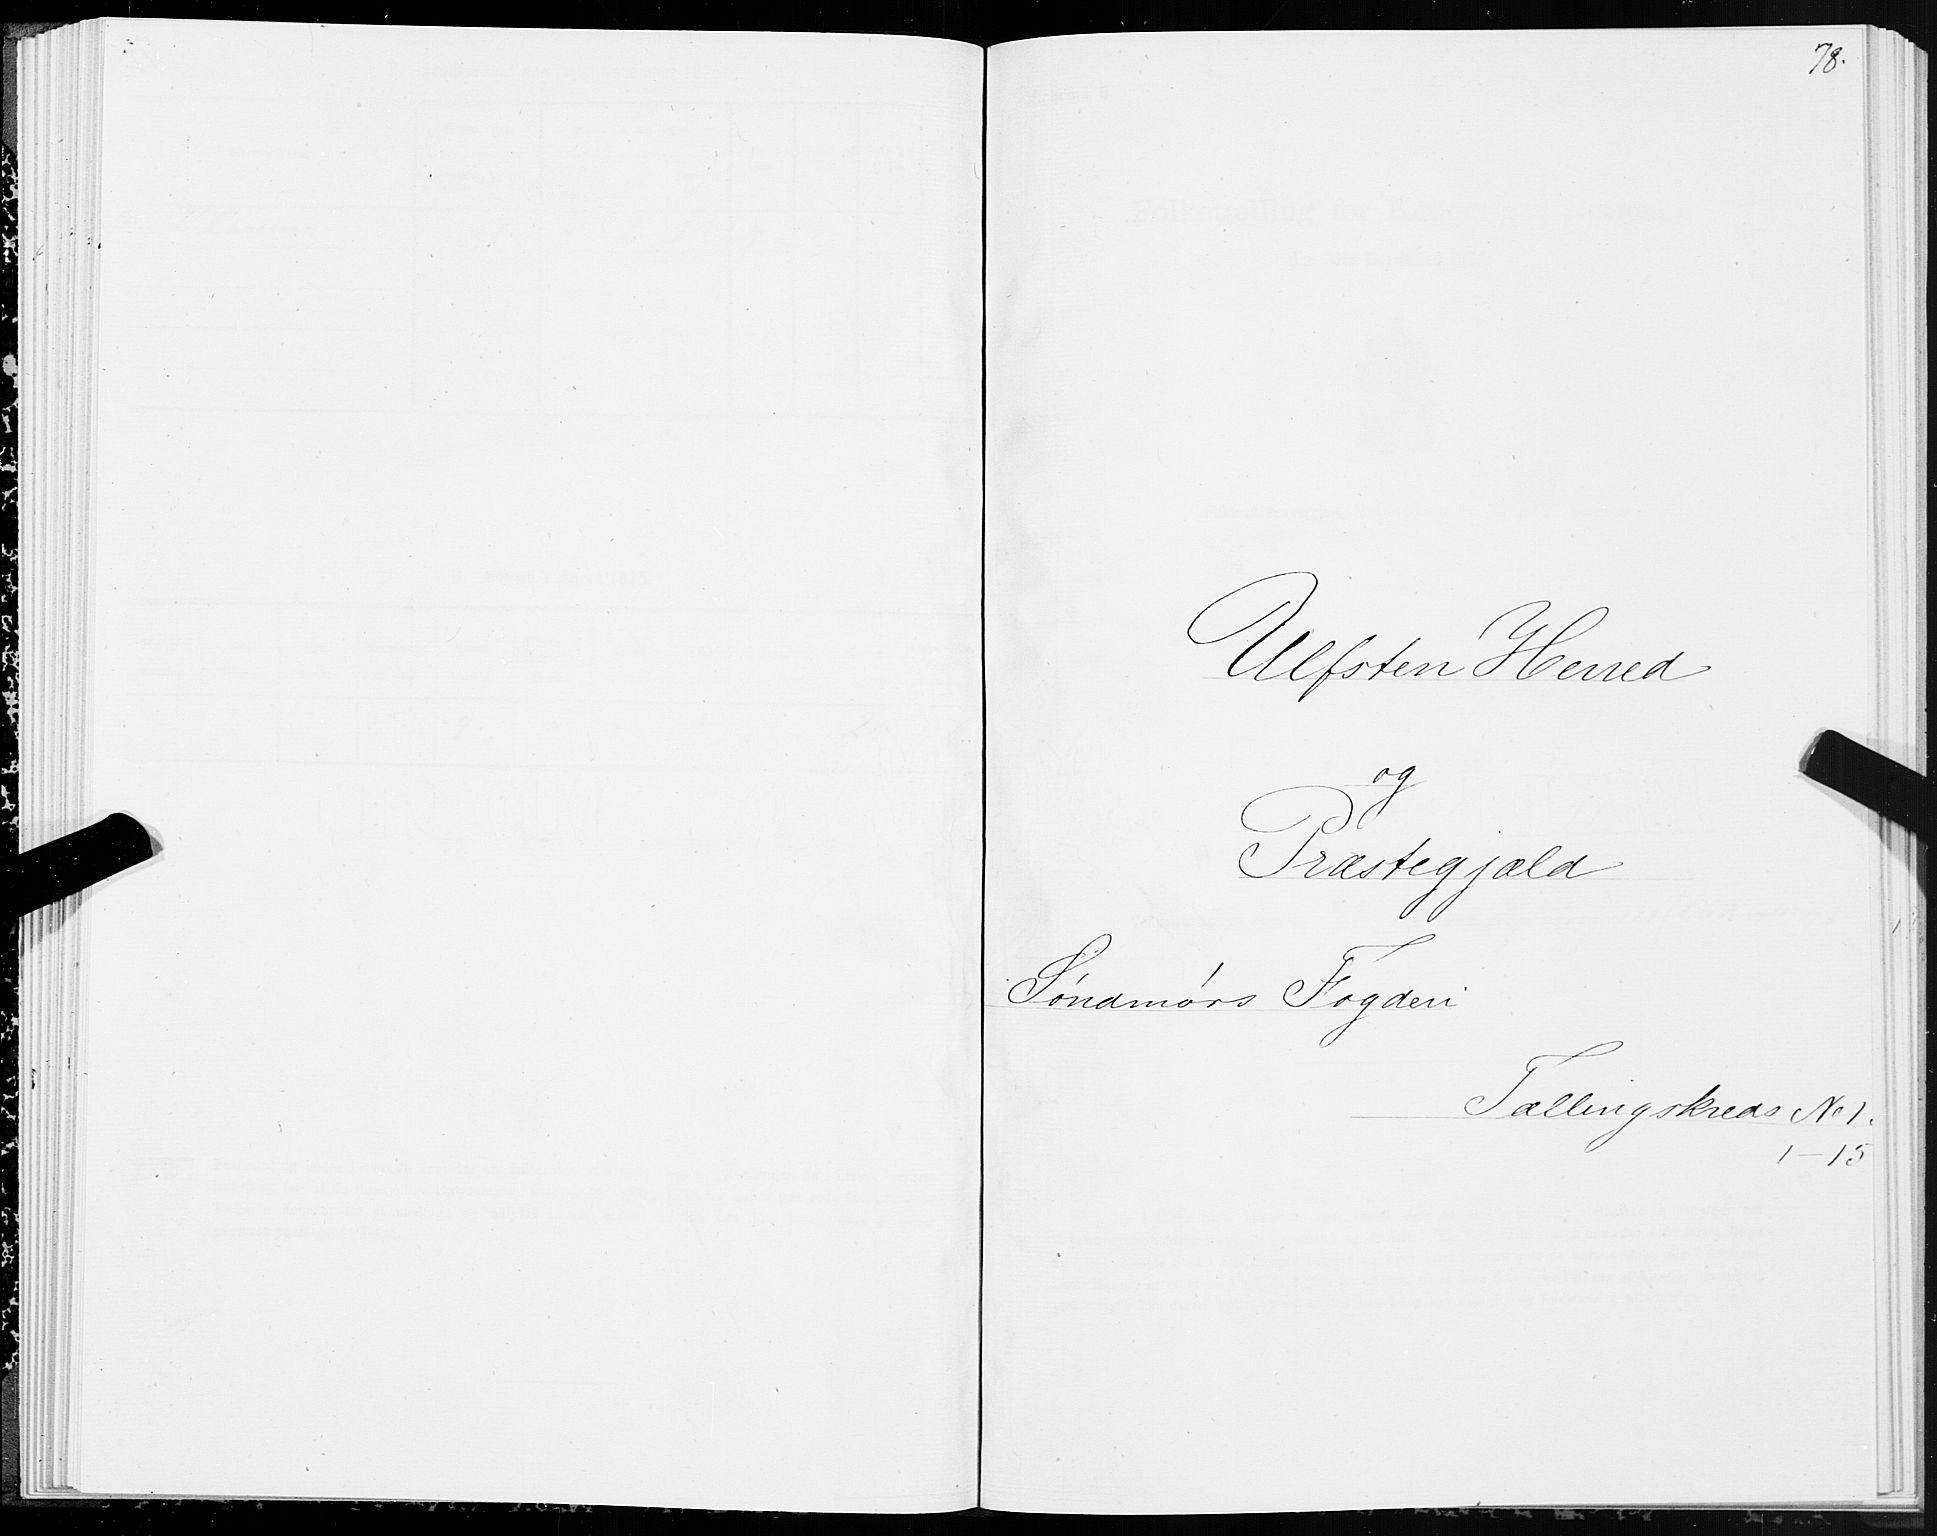 78.
Ulfsten Herred
og
Præstegjæld
Søndmørs Fogderi
Tællingskreds No 1.
1-15